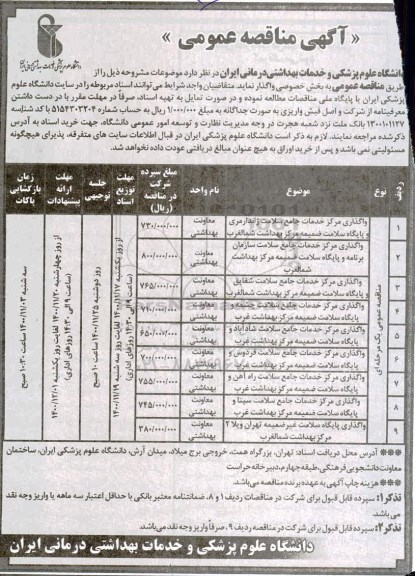 « آگهی مناقصه عمومی »
دانشگاه علوم پزشکی و خدمات بهداشتی درمانی ایران در نظر دارد موضوعات مشروحه ذیل را از
طریق مناقصه عمومی به بخش خصوصی واگذار نماید. متقاضیان واجد شرایط می‌توانند اسناد مربوطه را در سایت دانشگاه علوم
پزشکی ایران با پایگاه ملی مناقصات مطالعه نموده و در صورت تمایل به تهیه اسناد، صرفاً در مهلت مقرر با در دست داشتن
معرفینامه از شرکت و اصل فیش واریزی به صورت جداگانه به مبلغ ۱/۰۰۰/۰۰۰ ریال به حساب شماره ۵۱۵۴۳۰۳۲۰۴ با کد شناسه
۱۳۰۰۱۰۱۱۲۷ بانک ملت نزد شعبه هجرت در وجه مدیریت نظارت و توسعه امور عمومی دانشگاه، جهت خرید اسناد به آدرس
ذکر شده مراجعه نمایند. لازم به ذکر است دانشگاه علوم پزشکی ایران در قبال اطلاعات سایت های متفرقه، پذیرای هیچگونه
مسئولیتی نمی باشد و پس از خرید اوراق به هیچ عنوان مبالغ دریافتی عودت داده نخواهد شد.
ردیف نوع موضوع نام واحد مبلغ سپرده شرکت در مناقصه (ریال) مهلت توزیع اسناد جلسه توجیهی مهلت ارائه پیشنهادات زمان بازگشایی پاکات
مناقصه عمومی یک مرحله ای
۱ واگذاری مرکز خدمات جامع سلامت ژاندارمری و پایگاه سلامت ضمیمه مرکز بهداشت شمالغرب معاونت بهداشتی ۷۳۰/۰۰۰/۰۰۰
۲ واگذاری مرکز خدمات جامع سلامت سازمان برنامه و پایگاه سلامت ضمیمه مرکز بهداشت شمالغرب معاونت بهداشتی ۸۰۰/۰۰۰/۰۰۰
۳ واگذاری مرکز خدمات جامع سلامت شقایق و پایگاه سلامت ضمیمه مرکز بهداشت شمالغرب معاونت بهداشتی ۷۶۵/۰۰۰/۰۰۰
۴ واگذاری مرکز خدمات جامع سلامت جمعه و پایگاه سلامت ضمیمه مرکز بهداشت غرب معاونت بهداشتی ۷۴۰/۰۰۰/۰۰۰
۵ واگذاری مرکز خدمات جامع سلامت شادآباد و پایگاه سلامت ضمیمه مرکز بهداشت غرب معاونت بهداشتی ۶۵۰/۰۰۰/۰۰۰
۶ واگذاری مرکز خدمات جامع سلامت فردوس و پایگاه سلامت ضمیمه مرکز بهداشت غرب معاونت بهداشتی ۷۰۰/۰۰۰/۰۰۰
۷ واگذاری مرکز خدمات جامع سلامت راه آهن و پایگاه سلامت ضمیمه مرکز بهداشت غرب معاونت بهداشتی ۷۵۵/۰۰۰/۰۰۰
۸ واگذاری مرکز خدمات جامع سلامت سینا و پایگاه سلامت ضمیمه مرکز بهداشت غرب معاونت بهداشتی ۷۴۵/۰۰۰/۰۰۰
۹ واگذاری پایگاه سلامت غیرضمیمه تهران ویلا ۲ مرکز بهداشت شمالغرب معاونت بهداشتی ۳۸۰/۰۰۰/۰۰۰
از روز یکشنبه ۱۴۰۰/۱۱/۱۷ لغایت روز سه شنبه ۱۴۰۰/۱۱/۱۹ (ساعت ۹ الی ۱۴:۳۰ روزهای اداری)
روز دوشنبه ۱۴۰۰/۱۱/۲۵ ساعت ۱۰ صبح
از روز چهارشنبه ۱۴۰۰/۱۱/۲۰ لغایت روز یکشنبه ۱۴۰۰/۱۲/۰۱ (ساعت ۹ الی ۱۴:۳۰ روزهای اداری)
سه شنبه ۱۴۰۰/۱۲/۰۳ ساعت ۱۰:۳۰ صبح
*** آدرس محل دریافت اسناد: تهران، بزرگراه همت، خروجی برج میلاد، میدان آرش، دانشگاه علوم پزشکی ایران، ساختمان
معاونت دانشجویی فرهنگی، طبقه چهارم، دبیرخانه حراست
*** هزینه چاپ آگهی به عهده برنده مناقصه می باشد.
تذکر۱: سپرده قابل قبول برای شرکت در مناقصات ردیف ۱ و ۸، ضمانتنامه معتبر بانکی با حداقل اعتبار سه ماهه یا واریز وجه نقد
می باشد.
تذکر۲: سپرده قابل قبول برای شرکت در مناقصه ردیف ۹، صرفاً واریز وجه نقد می باشد.
دانشگاه علوم پزشکی و خدمات بهداشتی درمانی ایران